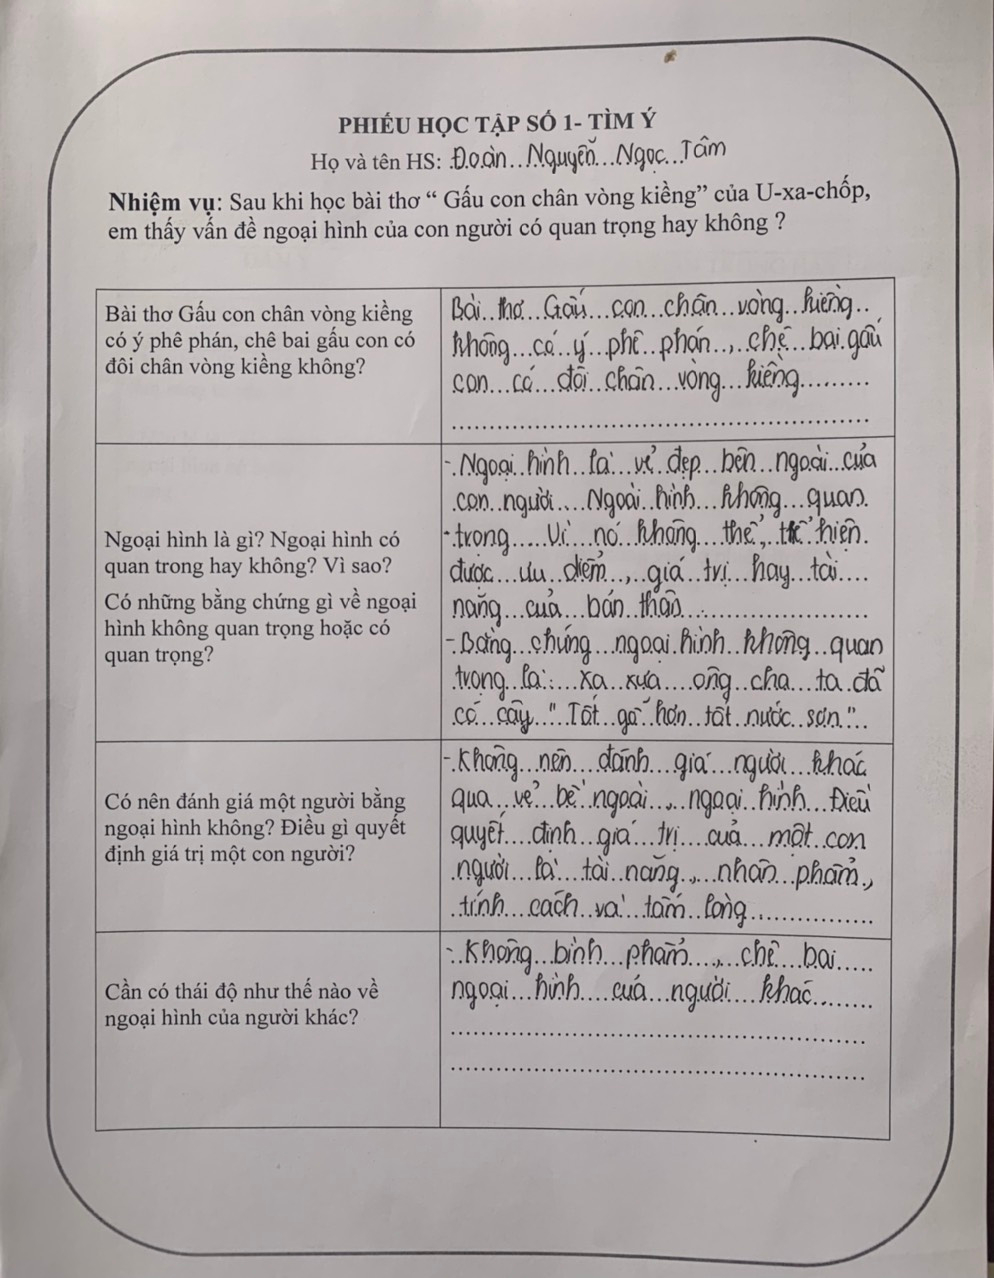 PHIẾU HỌC TẬP SỐ 1- TÌM Ý
Họ và tên HS: Đoàn Nguyễn Ngọc Tâm
Nhiệm vụ: Sau khi học bài thơ “ Gấu con chân vòng kiềng” của U-xa-chốp,
em thấy vấn đề ngoại hình của con người có quan trọng hay không ?
Bài thơ Gấu con chân vòng kiềng
có ý phê phán, chê bai gấu con có
đôi chân vòng kiềng không?
Bài thơ Gấu con chân vòng kiềng
không có ý phê phán, chê bai gấu
con có đôi chân vòng kiềng
Ngoại hình là gì? Ngoại hình có
quan trong hay không? Vì sao?
Có những bằng chứng gì về ngoại
hình không quan trọng hoặc có
quan trọng?
- Ngoại hình là vẻ đẹp bên ngoài của
con người. Ngoài hình không quan
trọng. Vì nó không thể, thể hiện
được ưu điểm, giá trị hay tài
năng của bản thân.
- Bằng chứng ngoại hình không quan
trọng là: Xa xưa ông cha ta đã
có câу "Tốt gỗ hơn tốt nước sơn".
Có nên đánh giá một người bằng
ngoại hình không? Điều gì quyết
định giá trị một con người?
- Không nên đánh giá người khác
qua vẻ bề ngoài, ngoại hình. Điều
quyết định giá trị của một con
người là tài năng, nhân phẩm,
tính cách và tấm lòng.
Cần có thái độ như thế nào về
ngoại hình của người khác?
- Không bình phẩm, chê bai
ngoại hình của người khác